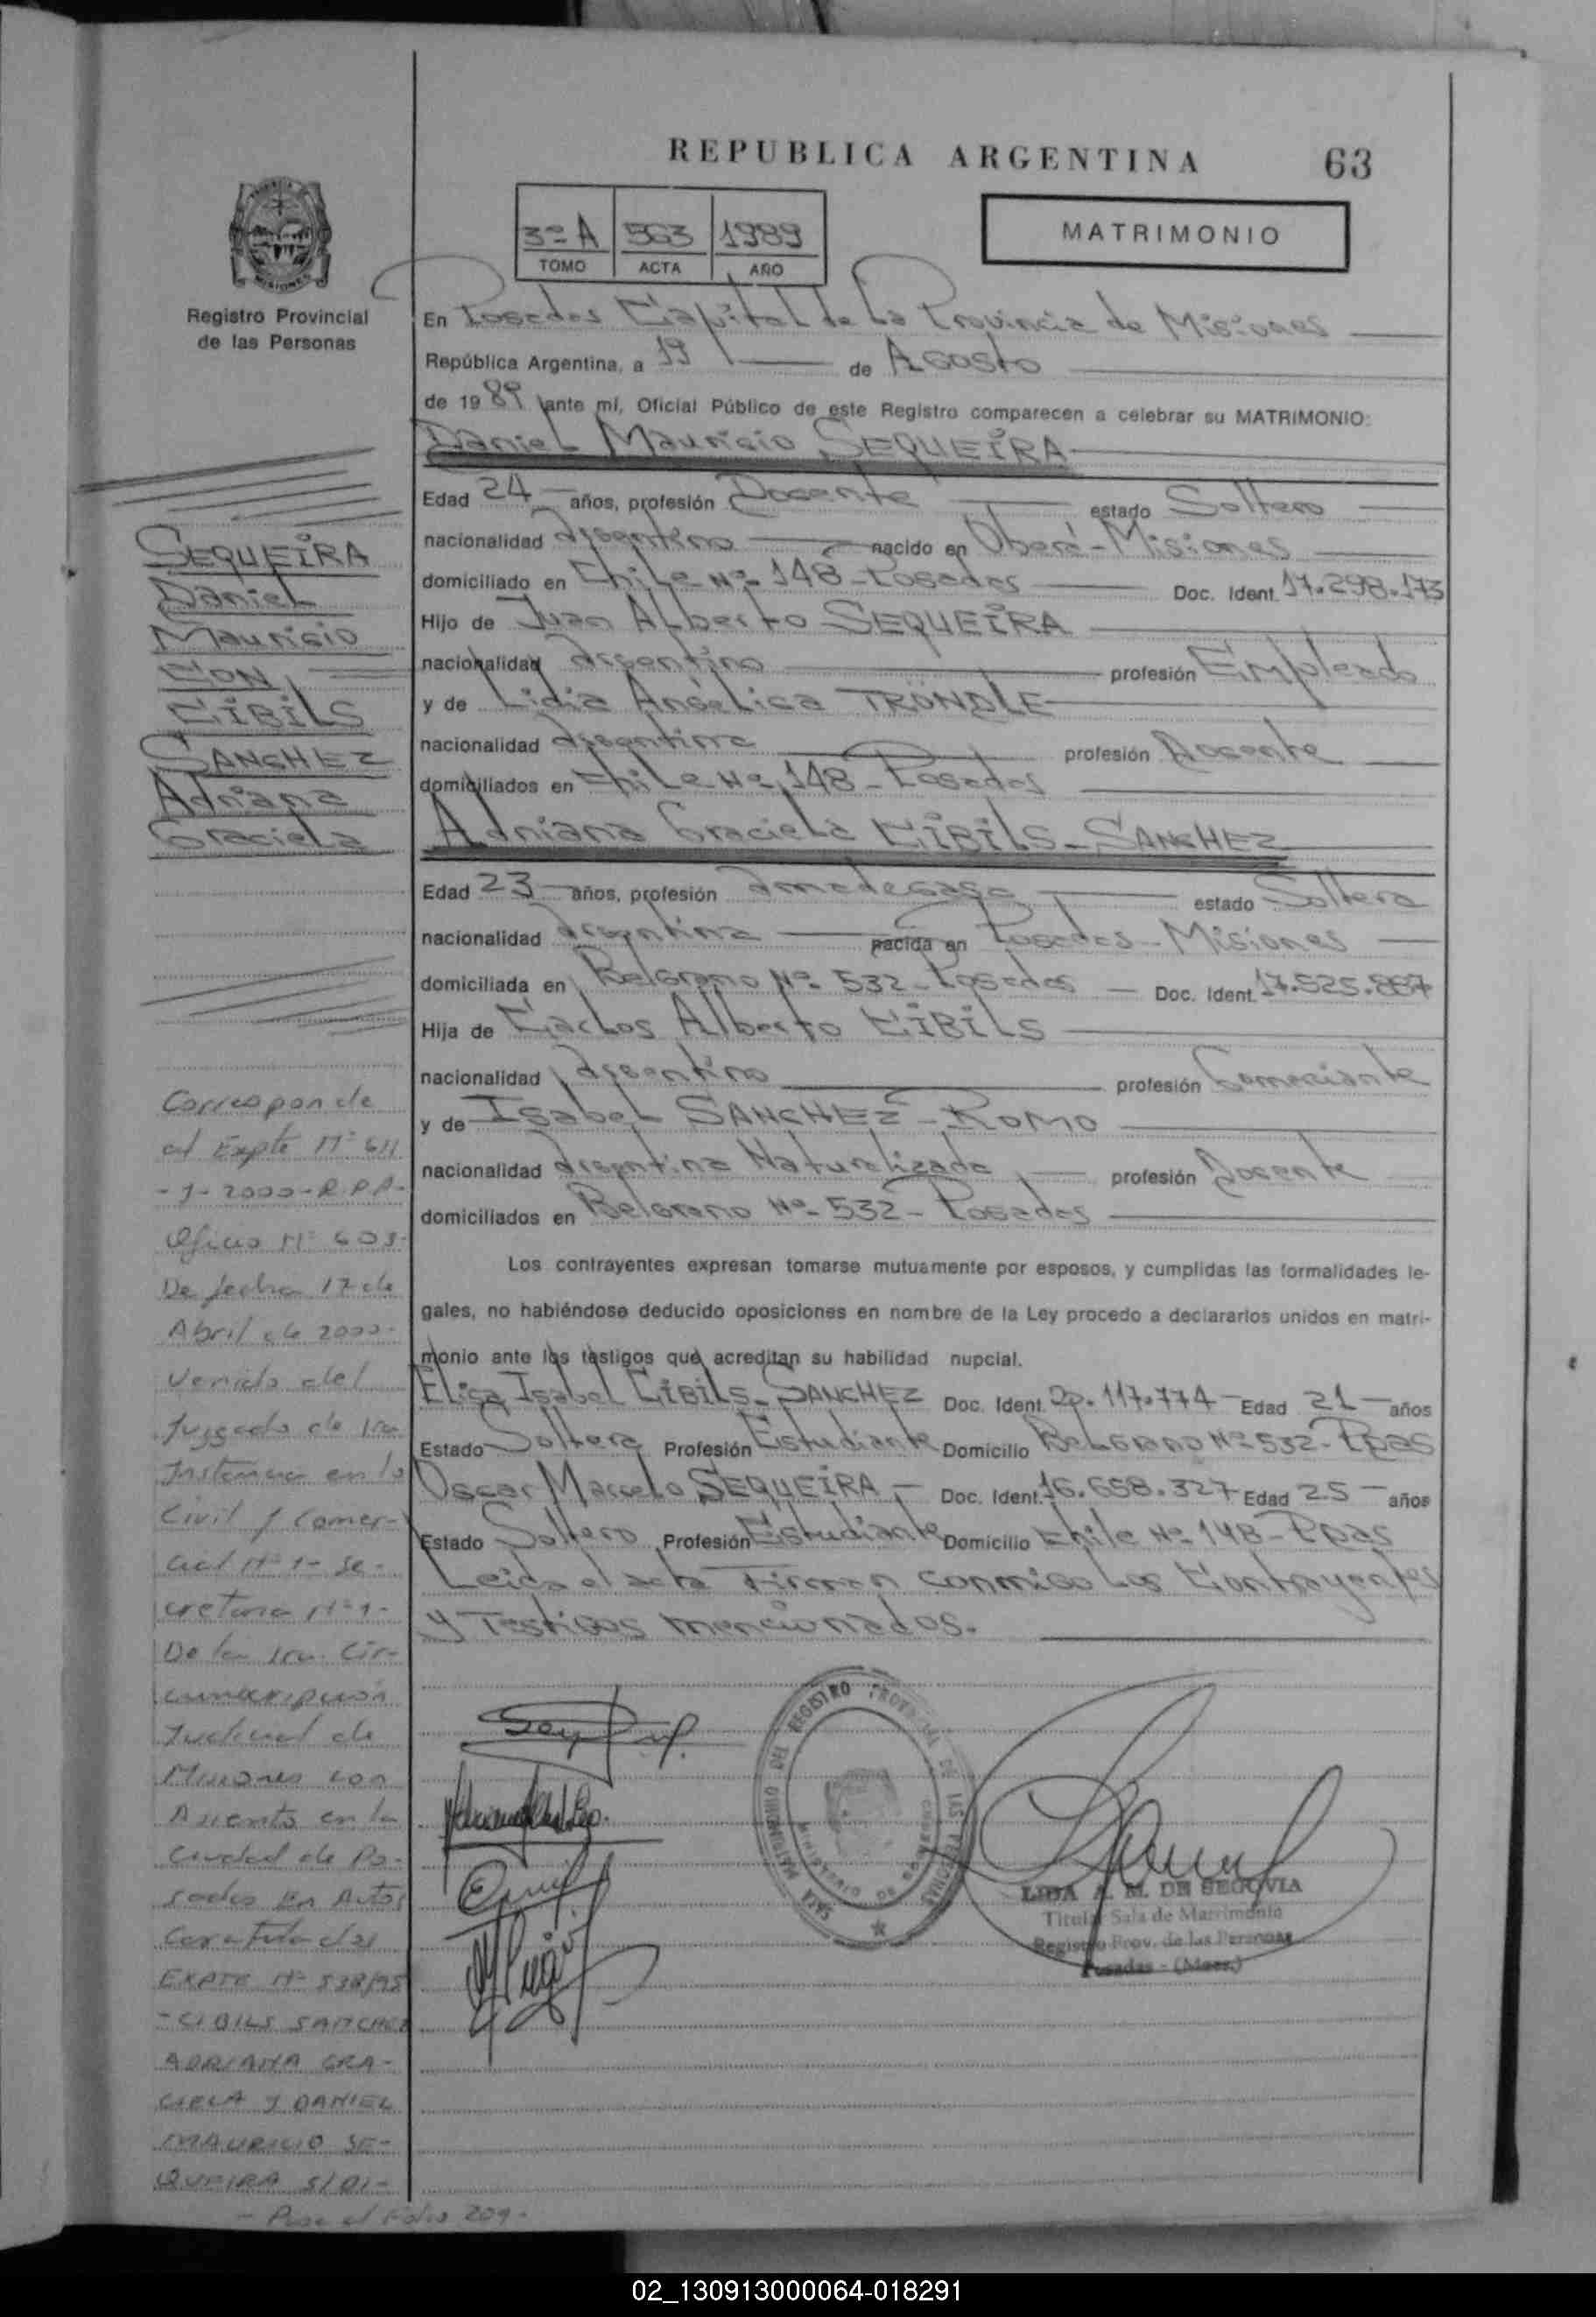 REPUBLICA ARGENTINA 63
3º A 563 1989
TOMO ACTA AÑO
MATRIMONIO
Registro Provincial
de las Personas
En Posadas Capital de La Provincia de Misiones
República Argentina, a 19 de Agosto
de 1989 ante mí, Oficial Público de este Registro comparecen a celebrar su MATRIMONIO:
Daniel Mauricio SEQUEIRA
Edad 24 años, profesión Docente estado Soltero
nacionalidad Argentino nacido en Oberá - Misiones
domiciliado en Chile Nº 148 - Posadas Doc. Ident. 17.298.173
Hijo de Juan Alberto SEQUEIRA
nacionalidad Argentino profesión Empleado
y de Lidia Angélica TRÖNDLE
nacionalidad Argentina profesión Docente
domiciliados en Chile Nº 148 - Posadas
Adriana Graciela CIBILS - SANCHEZ
Edad 23 años, profesión Ama de casa estado Soltera
nacionalidad Argentina nacida en Posadas - Misiones
domiciliada en Belgrano Nº 532 - Posadas Doc. Ident. 17.525.887
Hija de Carlos Alberto CIBILS
nacionalidad Argentino profesión Comerciante
y de Isabel SANCHEZ - ROMO
nacionalidad Argentina Naturalizada profesión Docente
domiciliados en Belgrano Nº 532 - Posadas
Los contrayentes expresan tomarse mutuamente por esposos, y cumplidas las formalidades le-
gales, no habiéndose deducido oposiciones en nombre de la Ley procedo a declararlos unidos en matri-
monio ante los testigos que acreditan su habilidad nupcial.
Elisa Isabel CIBILS - SANCHEZ Doc. Ident. 20.117.774 Edad 21 años
Estado Soltera Profesión Estudiante Domicilio Belgrano Nº 532 - Ppas
Oscar Marcelo SEQUEIRA Doc. Ident. 16.658.327 Edad 25 años
Estado Soltero Profesión Estudiante Domicilio Chile Nº 148 - Ppas
Leida el acta Firman conmigo Los Contrayentes
y Testigos mencionados.
SEQUEIRA
Daniel
Mauricio
CON
CIBILS
SANCHEZ
Adriana
Graciela
Corresponde
al Expte Nº 611
- J - 2000 - R.P.P.
Oficio Nº 603-
De fecha 17 de
Abril de 2000-
Venido del
Juzgado de 1ra
Instancia en lo
Civil y Comer-
cial Nº 1 - Se-
cretaria Nº 1-
De la 1ra. Cir-
cunscripción
Judicial de
Misiones con
Asiento en la
Ciudad de Po-
sadas En Autos
Caratulados
EXPTE Nº 538/95
- CIBILS SANCHEZ
ADRIANA GRA-
CIELA Y DANIEL
MAURICIO SE-
QUEIRA S/DI-
- Pasa al Folio 209 -
SALA MATRIMONIO DEL REGISTRO PROVINCIAL DE LAS PERSONAS
MINISTERIO DE GOBIERNO
LIDA A. M. DE SEGOVIA
Titular Sala de Matrimonio
Registro Prov. de las Personas
Posadas - (Mnes.)
02_130913000064-018291